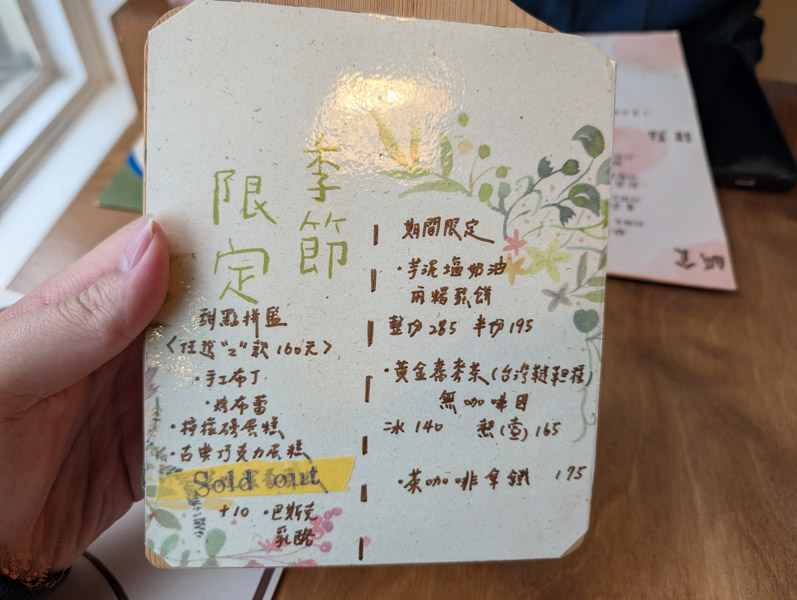 季節
限定
甜點拼盤
<任選"2"款 160元>
·手工布丁
·烤布蕾
·檸檬磅蛋糕
·古典巧克力蛋糕
Sold out
+10 ·巴斯克
乳酪
期間限定
·芋泥塩奶油
麻糬鬆餅
整份285 半份195
·黃金蕎麥茶(台灣韃靼種)
無咖啡因
冰 140 熱(壺)165
·茶咖啡拿鐵 175
鹹食